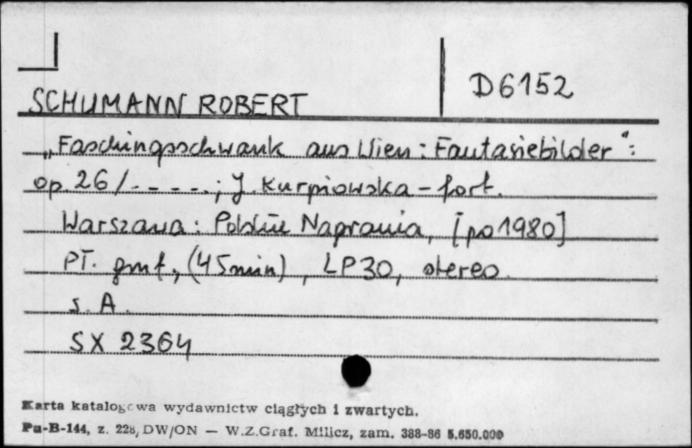 D6152
SCHUMANN ROBERT
„Faschingsschwank aus Wien: Fantasiebilder":
op. 26 /-----; J. Kurpiowska - fort.
Warszawa: Polskie Nagrania, [po 1980]
PŁ. gmf., (45 min), LP30, stereo.
s. A.
SX 2364
Karta katalogowa wydawnictw ciągłych i zwartych.
Pu-B-144, z. 228, DW/ON — W.Z.Graf. Milicz, zam. 388-86 5.650.000